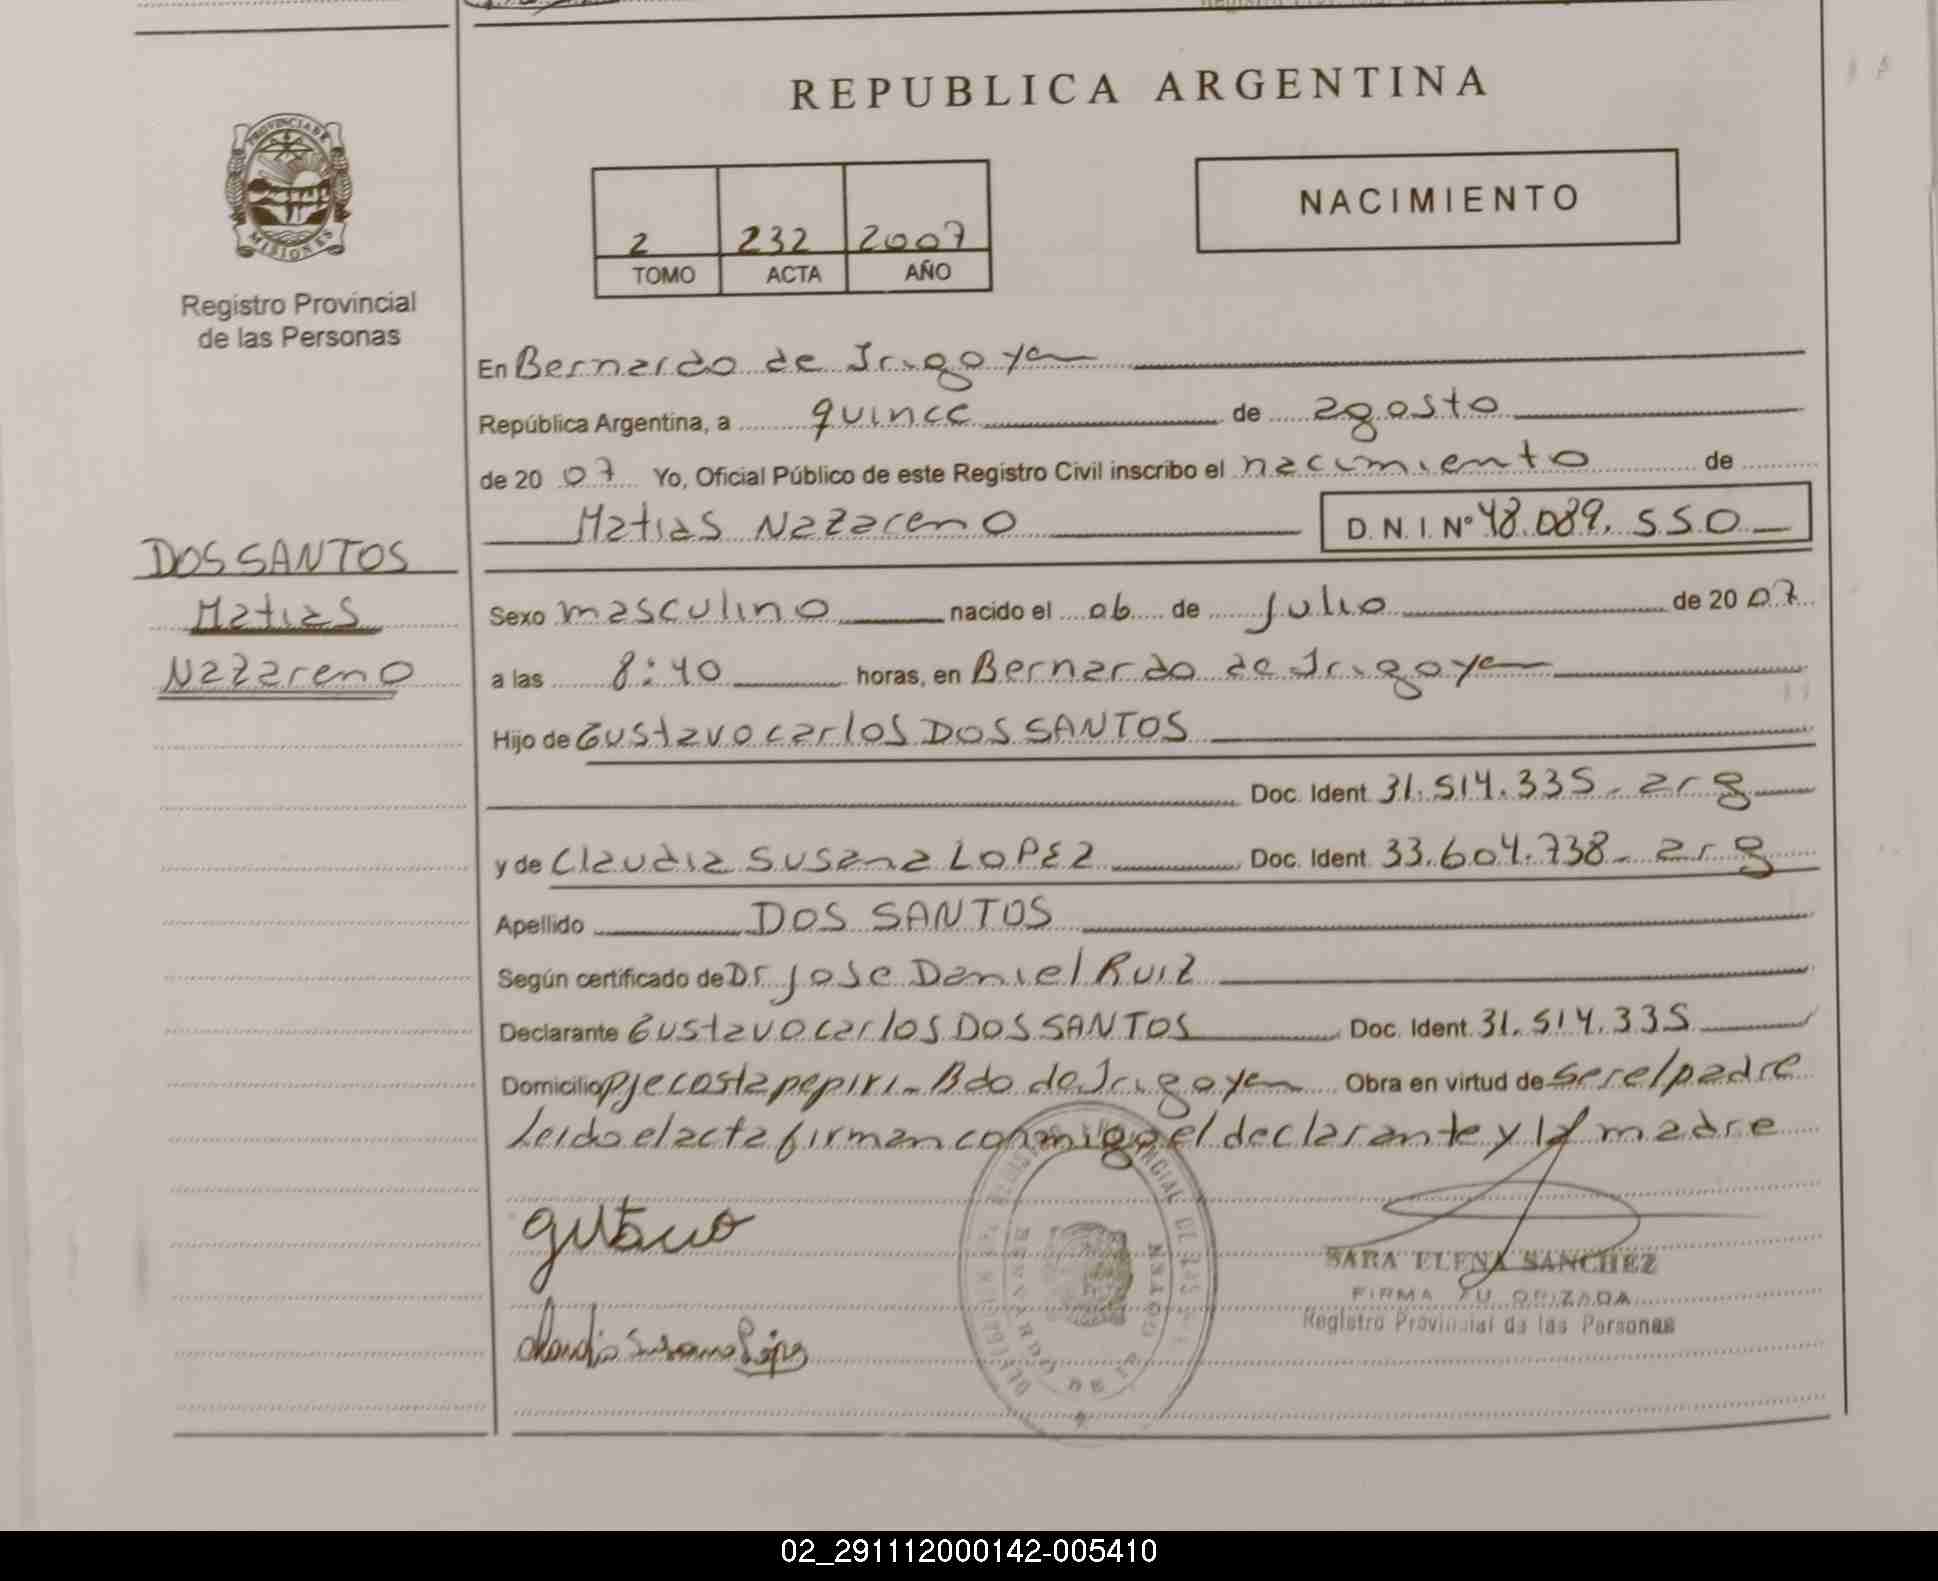 REPUBLICA ARGENTINA
PROVINCIA DE
MISIONES
Registro Provincial
de las Personas
NACIMIENTO
2 232 2007
TOMO ACTA AÑO
En Bernardo de Irigoyen
República Argentina, a quince de agosto
de 20 07 Yo, Oficial Público de este Registro Civil inscribo el nacimiento de
Matias Nazareno D.N.I. Nº 48.089.550
DOS SANTOS
Matias
Nazareno
Sexo masculino nacido el 06 de julio de 20 07
a las 8:40 horas, en Bernardo de Irigoyen
Hijo de Gustavo Carlos DOS SANTOS
Doc. Ident. 31.514.335 - arg
y de Claudia Susana LOPEZ Doc. Ident. 33.604.738 - arg
Apellido DOS SANTOS
Según certificado de Dr. Jose Daniel Ruiz
Declarante Gustavo Carlos DOS SANTOS Doc. Ident. 31.514.335
Domicilio pje costa pepiri - Bdo de Irigoyen Obra en virtud de ser el padre
Leido el acta firman conmigo el declarante y la madre
SARA ELENA SANCHEZ
FIRMA AUTORIZADA
Registro Provincial de las Personas
Claudia Susana López
02_291112000142-005410